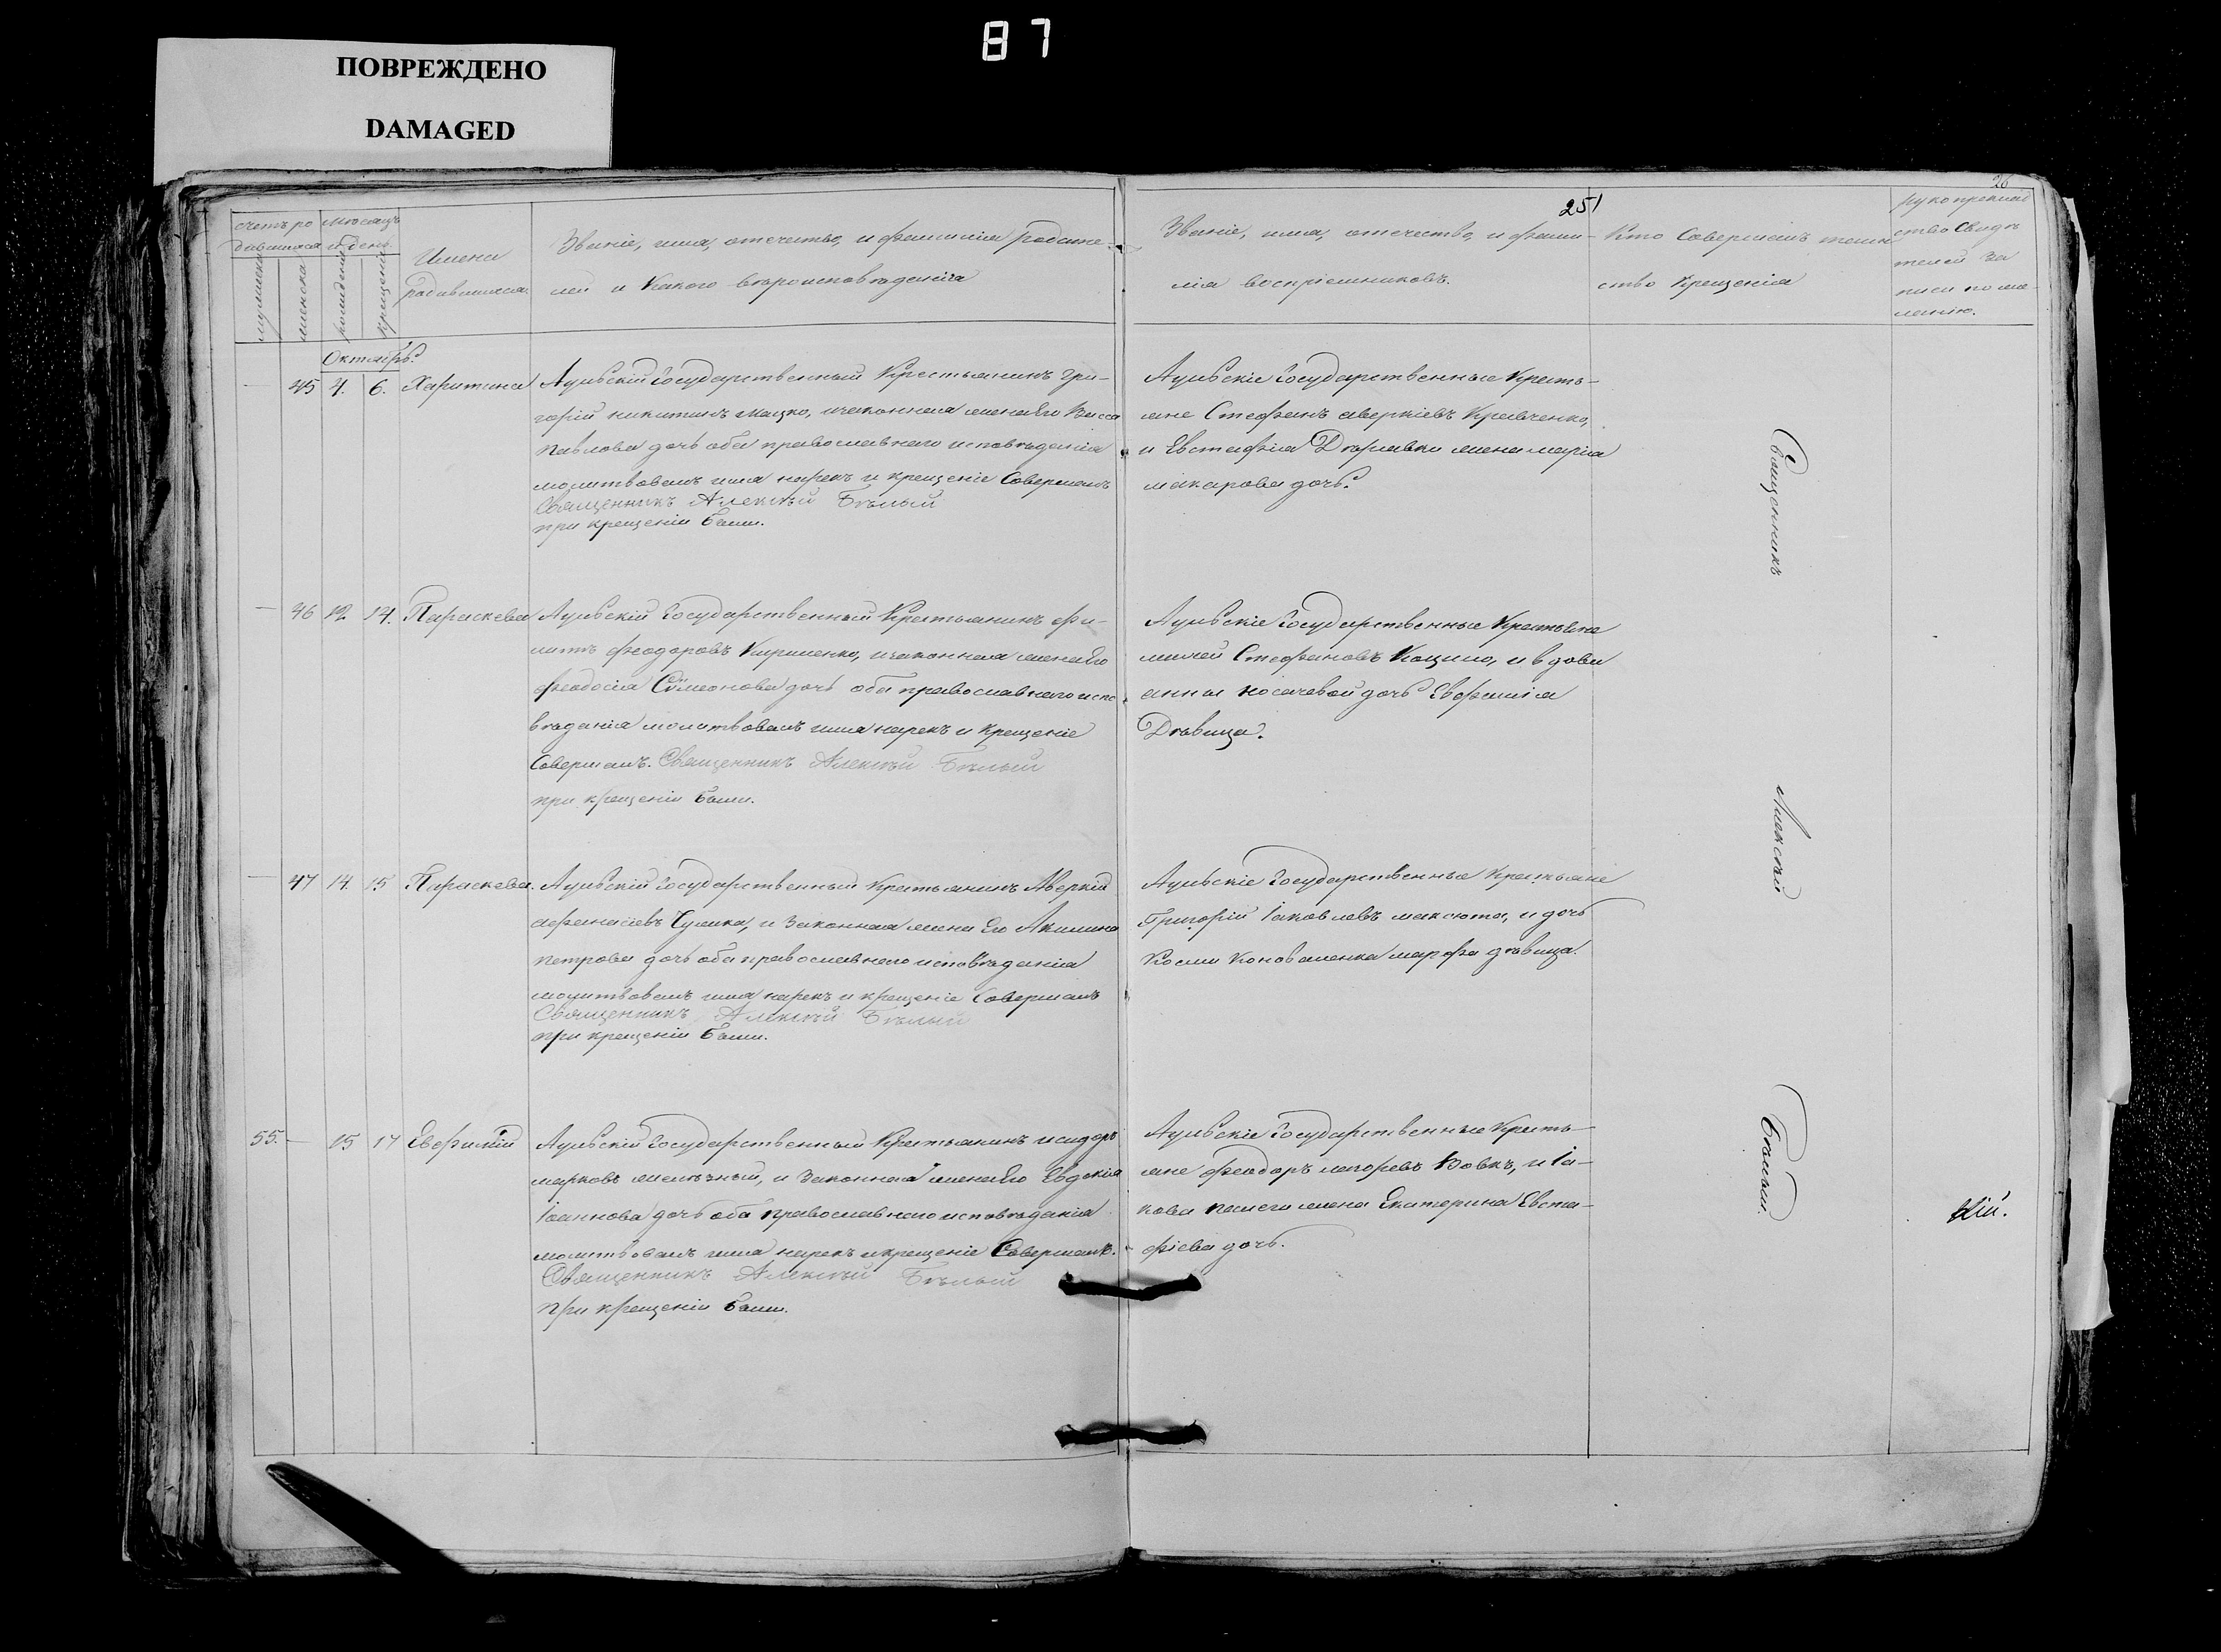 87
ПОВРЕЖДЕНО
DAMAGED
26
251
счетъ ро
дившихся
мужеска
женска
месяцъ
и день
рожденія
крещенія
Имена
родившихся.
Званіе, имя, отечество, и фамилія родите-
лей и Какого вѣроисповѣданія
Званіе, имя, отечество, и фами-
лія воспріемниковъ.
Кто Совершалъ таин
ство Крещенія
рукоприклад
ство Свидѣ
телей за
писи по же-
ланію.
Октябрь.
45 4. 6. Харитина
Государственный Крестьянинъ Гри-
горій никитинъ Мацко, и законная жена Его Васса
Павлова дочь оба православнаго исповѣданія
молитвовалъ имя нарекъ и крещеніе Совершалъ
Священникъ Алексѣй Бѣлый
при крещеніи были.
Государственные Кресть-
яне Стефанъ аверкіевъ Кравченко,
и Евстафія жена марія
макарова дочь.
46 12 14. Параскева
Государственный Крестьянинъ Фи-
липъ Феодоровъ Кириленко, и законная жена Его
Феодосія Сѵмеонова дочь оба православнаго испо
вѣданія молитвовалъ имя нарекъ и Крещеніе
Совершалъ. Священникъ Алексѣй Бѣлый
при крещеніи были.
Государственные Крестьяне
Стефановъ и вдовы
анны носачевой дочь Евфимія
Дѣвица.
47 14. 15 Параскева.
Государственный Крестьянинъ Аверкій
афанасіевъ и Законная жена Его Акилина
петрова дочь оба православнаго исповѣданія
молитвовалъ имя нарекъ и крещеніе Совершалъ
Священникъ Алексѣй Бѣлый
при крещеніи были.
Государственные Крестьяне
Григорій Іаковлевъ максюта, и дочь
Космы Коноваленка марфа дѣвица.
55. 15 17 Евфимій
Государственный Крестьянинъ исидоръ
марковъ и Законная жена Его Евдокія
Іоаннова дочь оба православнаго исповѣданія
молитвовалъ имя нарекъ и крещеніе Совершалъ.
Священникъ Алексѣй Бѣлый
при крещеніи были.
Государственные Кресть-
яне Феодоръ Вовкъ, и Іа-
кова жена Екатерина Евста-
фіева дочь.
Священникъ
Алексѣй
Бѣлый.